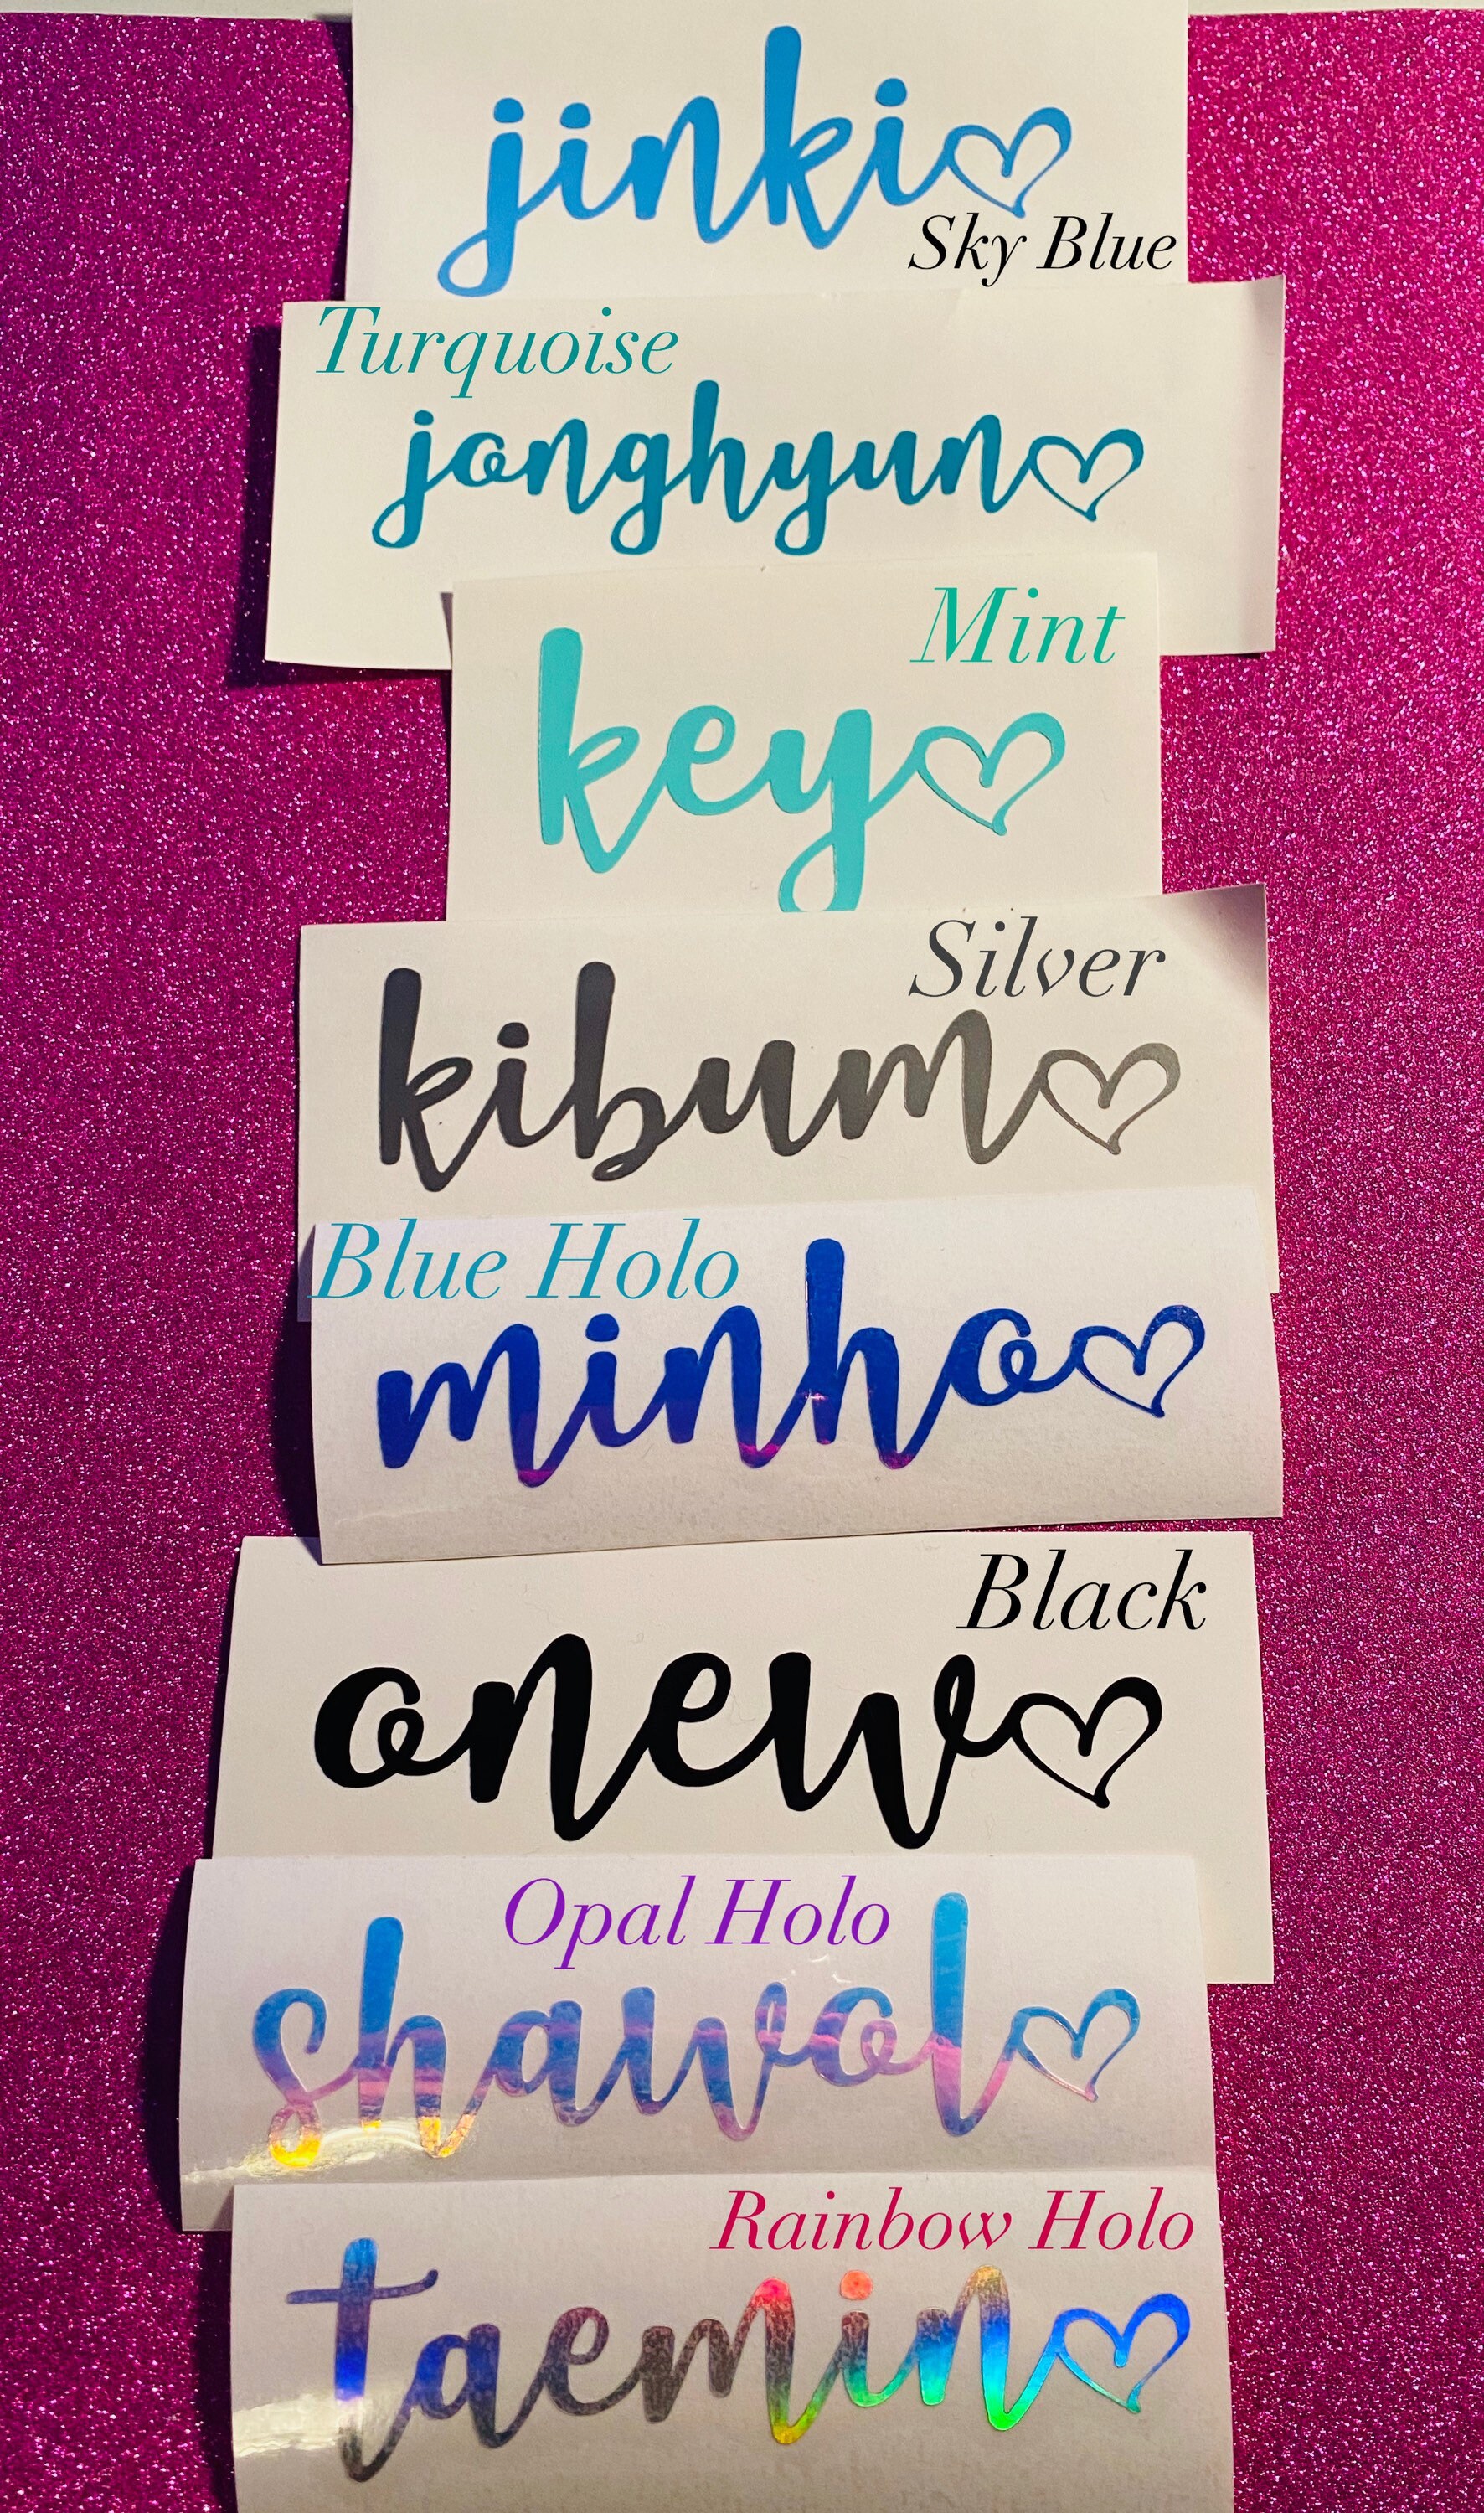 jinki♡
Sky Blue
Turquoise
jonghyun♡
Mint
key♡
Silver
kibum♡
Blue Holo
minho♡
Black
onew♡
Opal Holo
shawol♡
Rainbow Holo
taemin♡